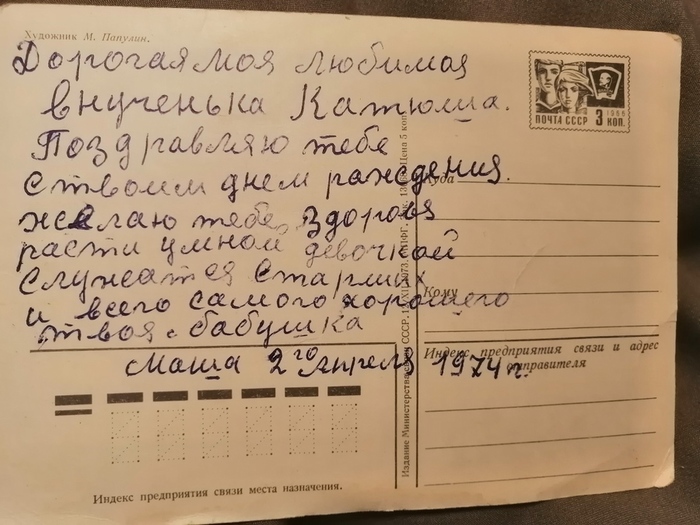 Художник М. Папулин.
Дорогая моя любимая
внученька Катюша.
Поздравляю тебе
ствоим днем раждения.
желаю тебе здоровя
расти умной девочкой
служатся старших
и всего самого хорошего
твоя бабушка
Маша 2го апреля 1974 г.
ПОЧТА СССР 3 КОП.
1966
Куда
Кому
Индекс предприятия связи и адрес
отправителя
Издание Министерства связи СССР.
Цена 5 коп.
Индекс предприятия связи места назначения.